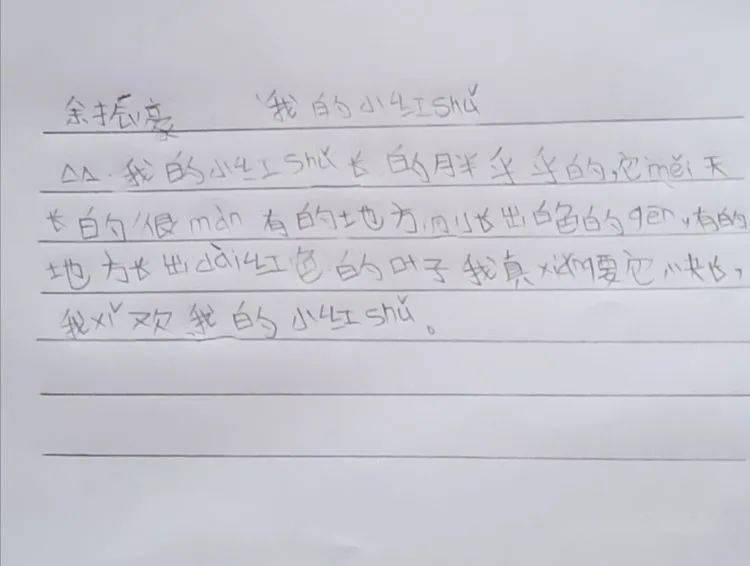 余振豪 我的小红shǔ
△△我的小红shǔ长的胖乎乎的,它měi天
长的很màn有的地方长出白色的gēn,有的
地方长出dài红色的叶子我真xiǎng要它快长,
我xǐ欢我的小红shǔ。